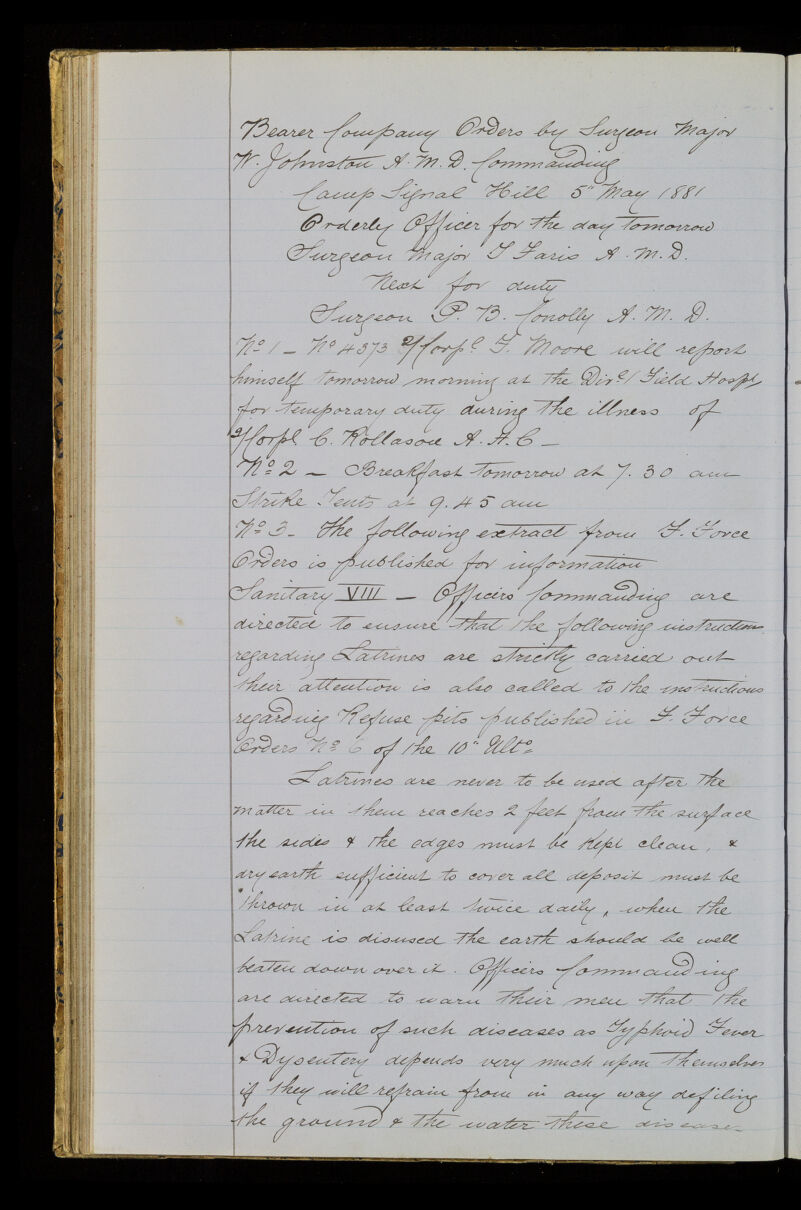 Bearer Company Orders by Surgeon Major
W. Johnston A.M.D. Commanding
Camp Signal Hill 5" May 1881
Orderly Officer for the day tomorrow
Surgeon Major S Faris A.M.D.
Next for duty
Surgeon P. B. Conolly A.M.D.
No 1 – No 4373 2/Corpl F. Moore will report
himself tomorrow morning at the Divl/ Field Hospl
for temporary duty during the illness of
2/Corpl C. Rollason A.H.C –
No 2 – Breakfast tomorrow at 7.30 am
Strike Tents at 9.45 am
No 3 – The following extract from F. Force
Orders is published for information
Sanitary VIII – Officers Commanding are
directed to ensure that the following instructions
regarding Latrines are strictly carried out
their attention is also called to the instructions
regarding Refuse pits published in F. Force
Orders No 6 of the 10" Ulto
Latrines are never to be used after the
matter in them reaches 2 feet from the surface
the sides & the edges must be kept clean, &
dry earth sufficient to cover all deposit must be
thrown in at least twice daily, when the
Latrine is disused the earth should be well
beaten down over it. Officers Commanding
are directed to warn their men that the
prevention of such diseases as Typhoid Fever
& Dysentery depends very much upon themselves
if they will refrain from in any way defiling
the ground & the water these diseases